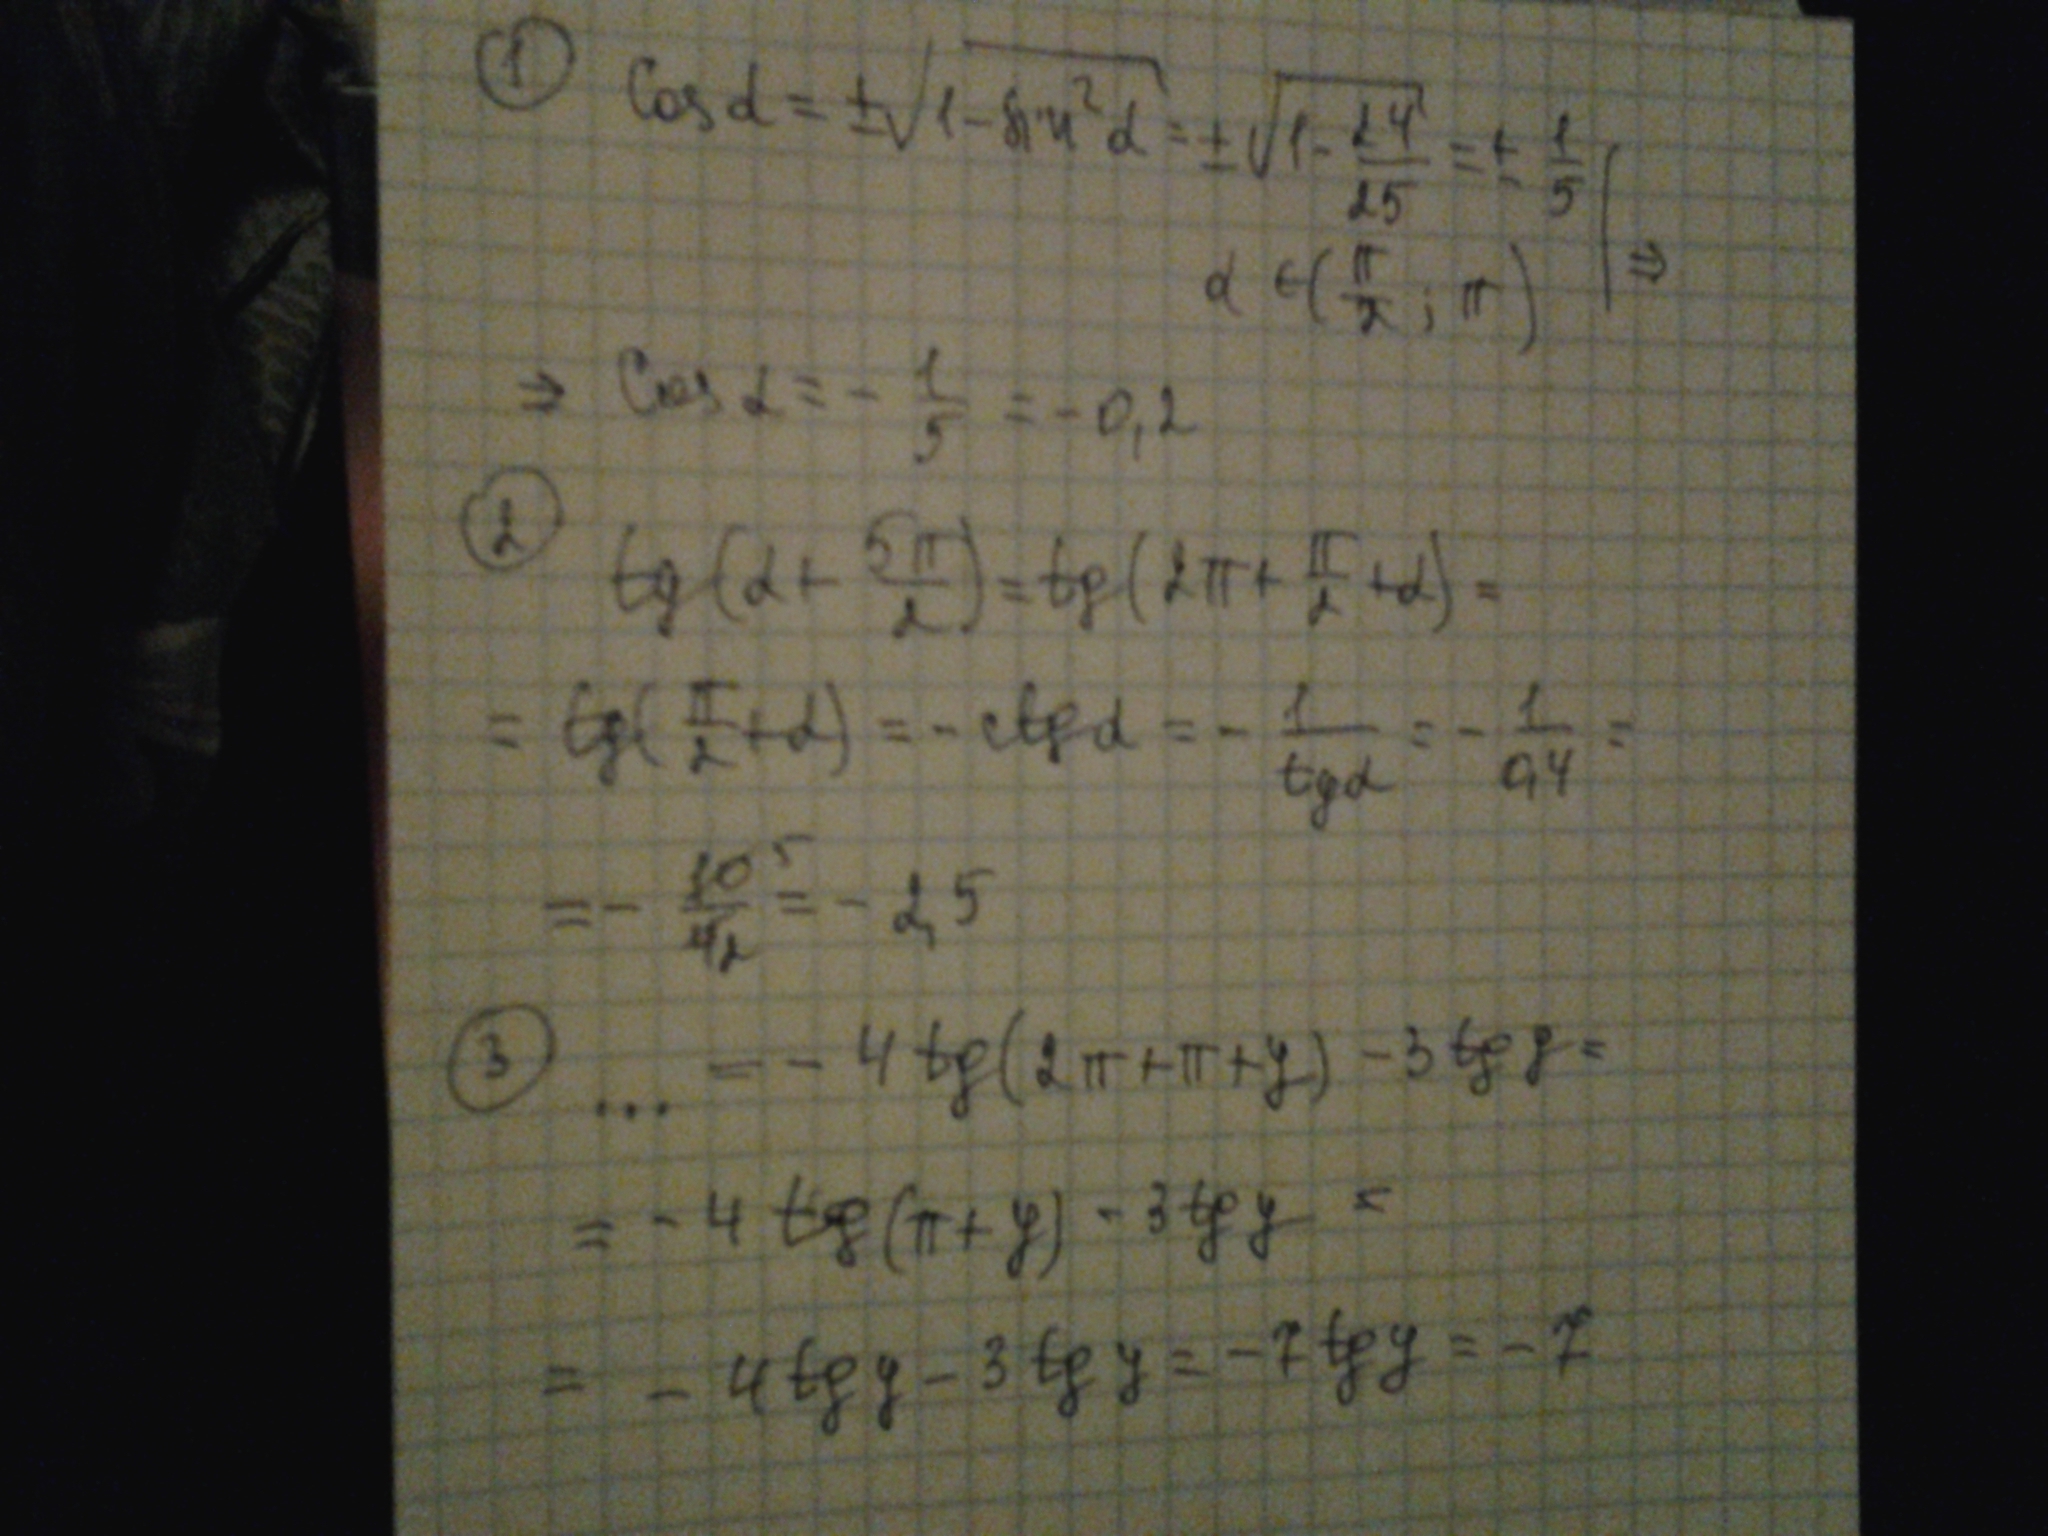 ① Cos α = ±√(1 - sin²α) = ±√(1 - 24/25) = ± 1/5 | ⇒
α ∈ (π/2 ; π)
⇒ Cos α = - 1/5 = - 0,2
② tg(α + 5π/2) = tg(2π + π/2 + α) =
= tg(π/2 + α) = - ctg α = - 1/tg α = - 1/0,4 =
= - 10 5/4 2 = - 2,5
③ ... = - 4 tg(2π + π + y) - 3 tg y =
= - 4 tg(π + y) - 3 tg y =
= - 4 tg y - 3 tg y = - 7 tg y = - 7